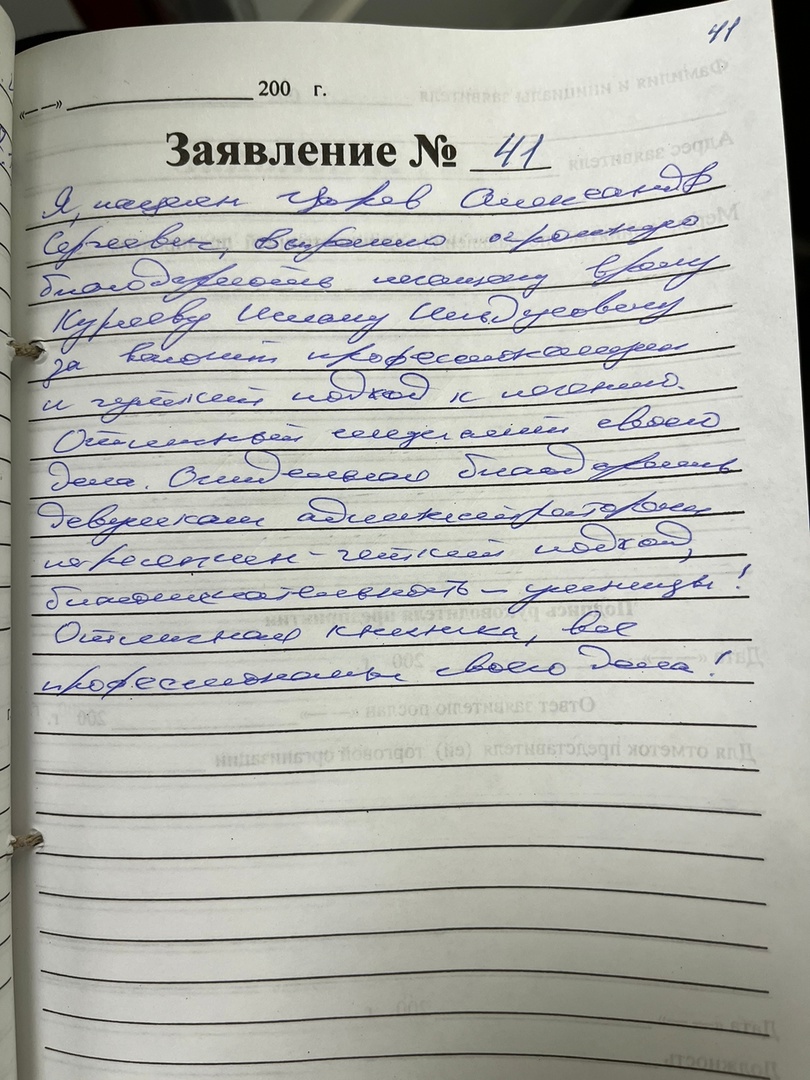 41
«——» 200 г.
Заявление № 41
Я, пациент Александр
Сергеевич, выражаю огромную
благодарность лечащему врачу
Курлеву Ильдусовичу
за профессионализм
и чуткий подход к лечению.
Отличный специалист своего
дела. Отдельная благодарность
девушкам администраторам
на ресепшен - чуткий подход,
благожелательность - умницы!
Отличная клиника, все
профессионалы своего дела!